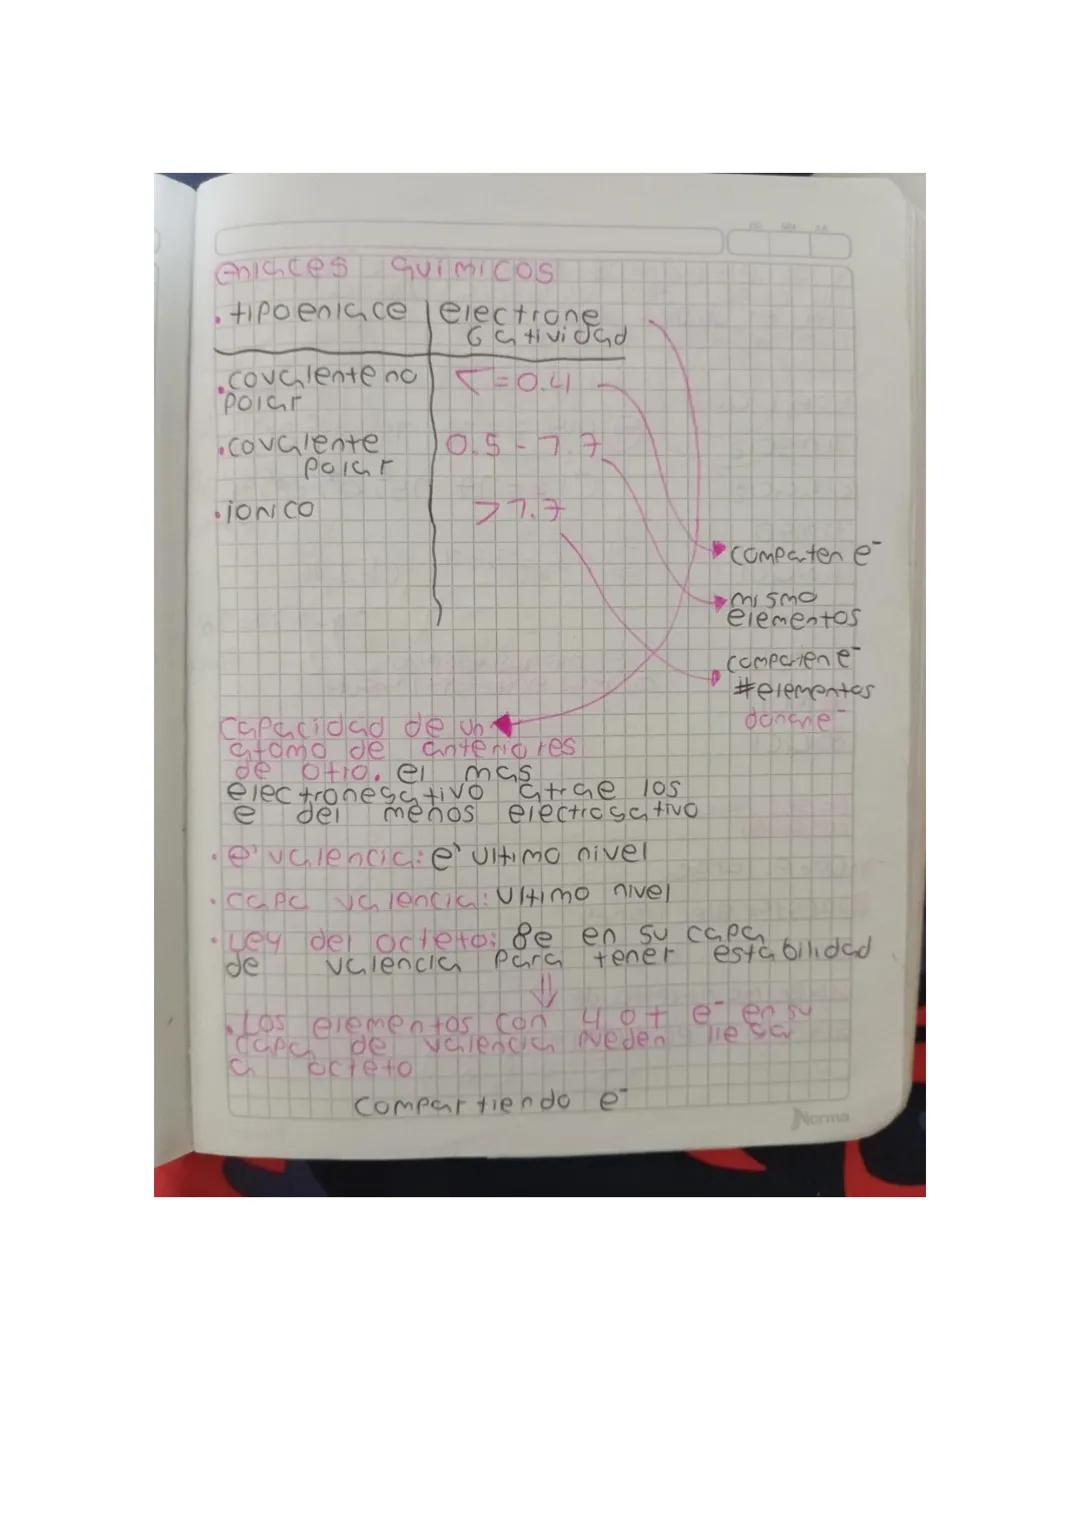 enlaces quimicos
. tipo enlace electrone
Gatividad
. covalente no <=0.4
polar
. covalente 0.5 - 1.7
polar
. ionico >1.7
comparten e-
mismo
elementos
comparten e-
#elementos
donan e-
capacidad de un
atomo de anteriores
de otro. el mas
electronegativo atrae los
e del menos electrogativo
. e- valencia: e- ultimo nivel
. capa valencia: Ultimo nivel
. Ley del octeto: 8e en su capa
de valencia para tener estabilidad
⇓
. Los elementos con 4 o + e- en su
capa de valencia pueden llegar
a octeto
compartiendo e-
Norma